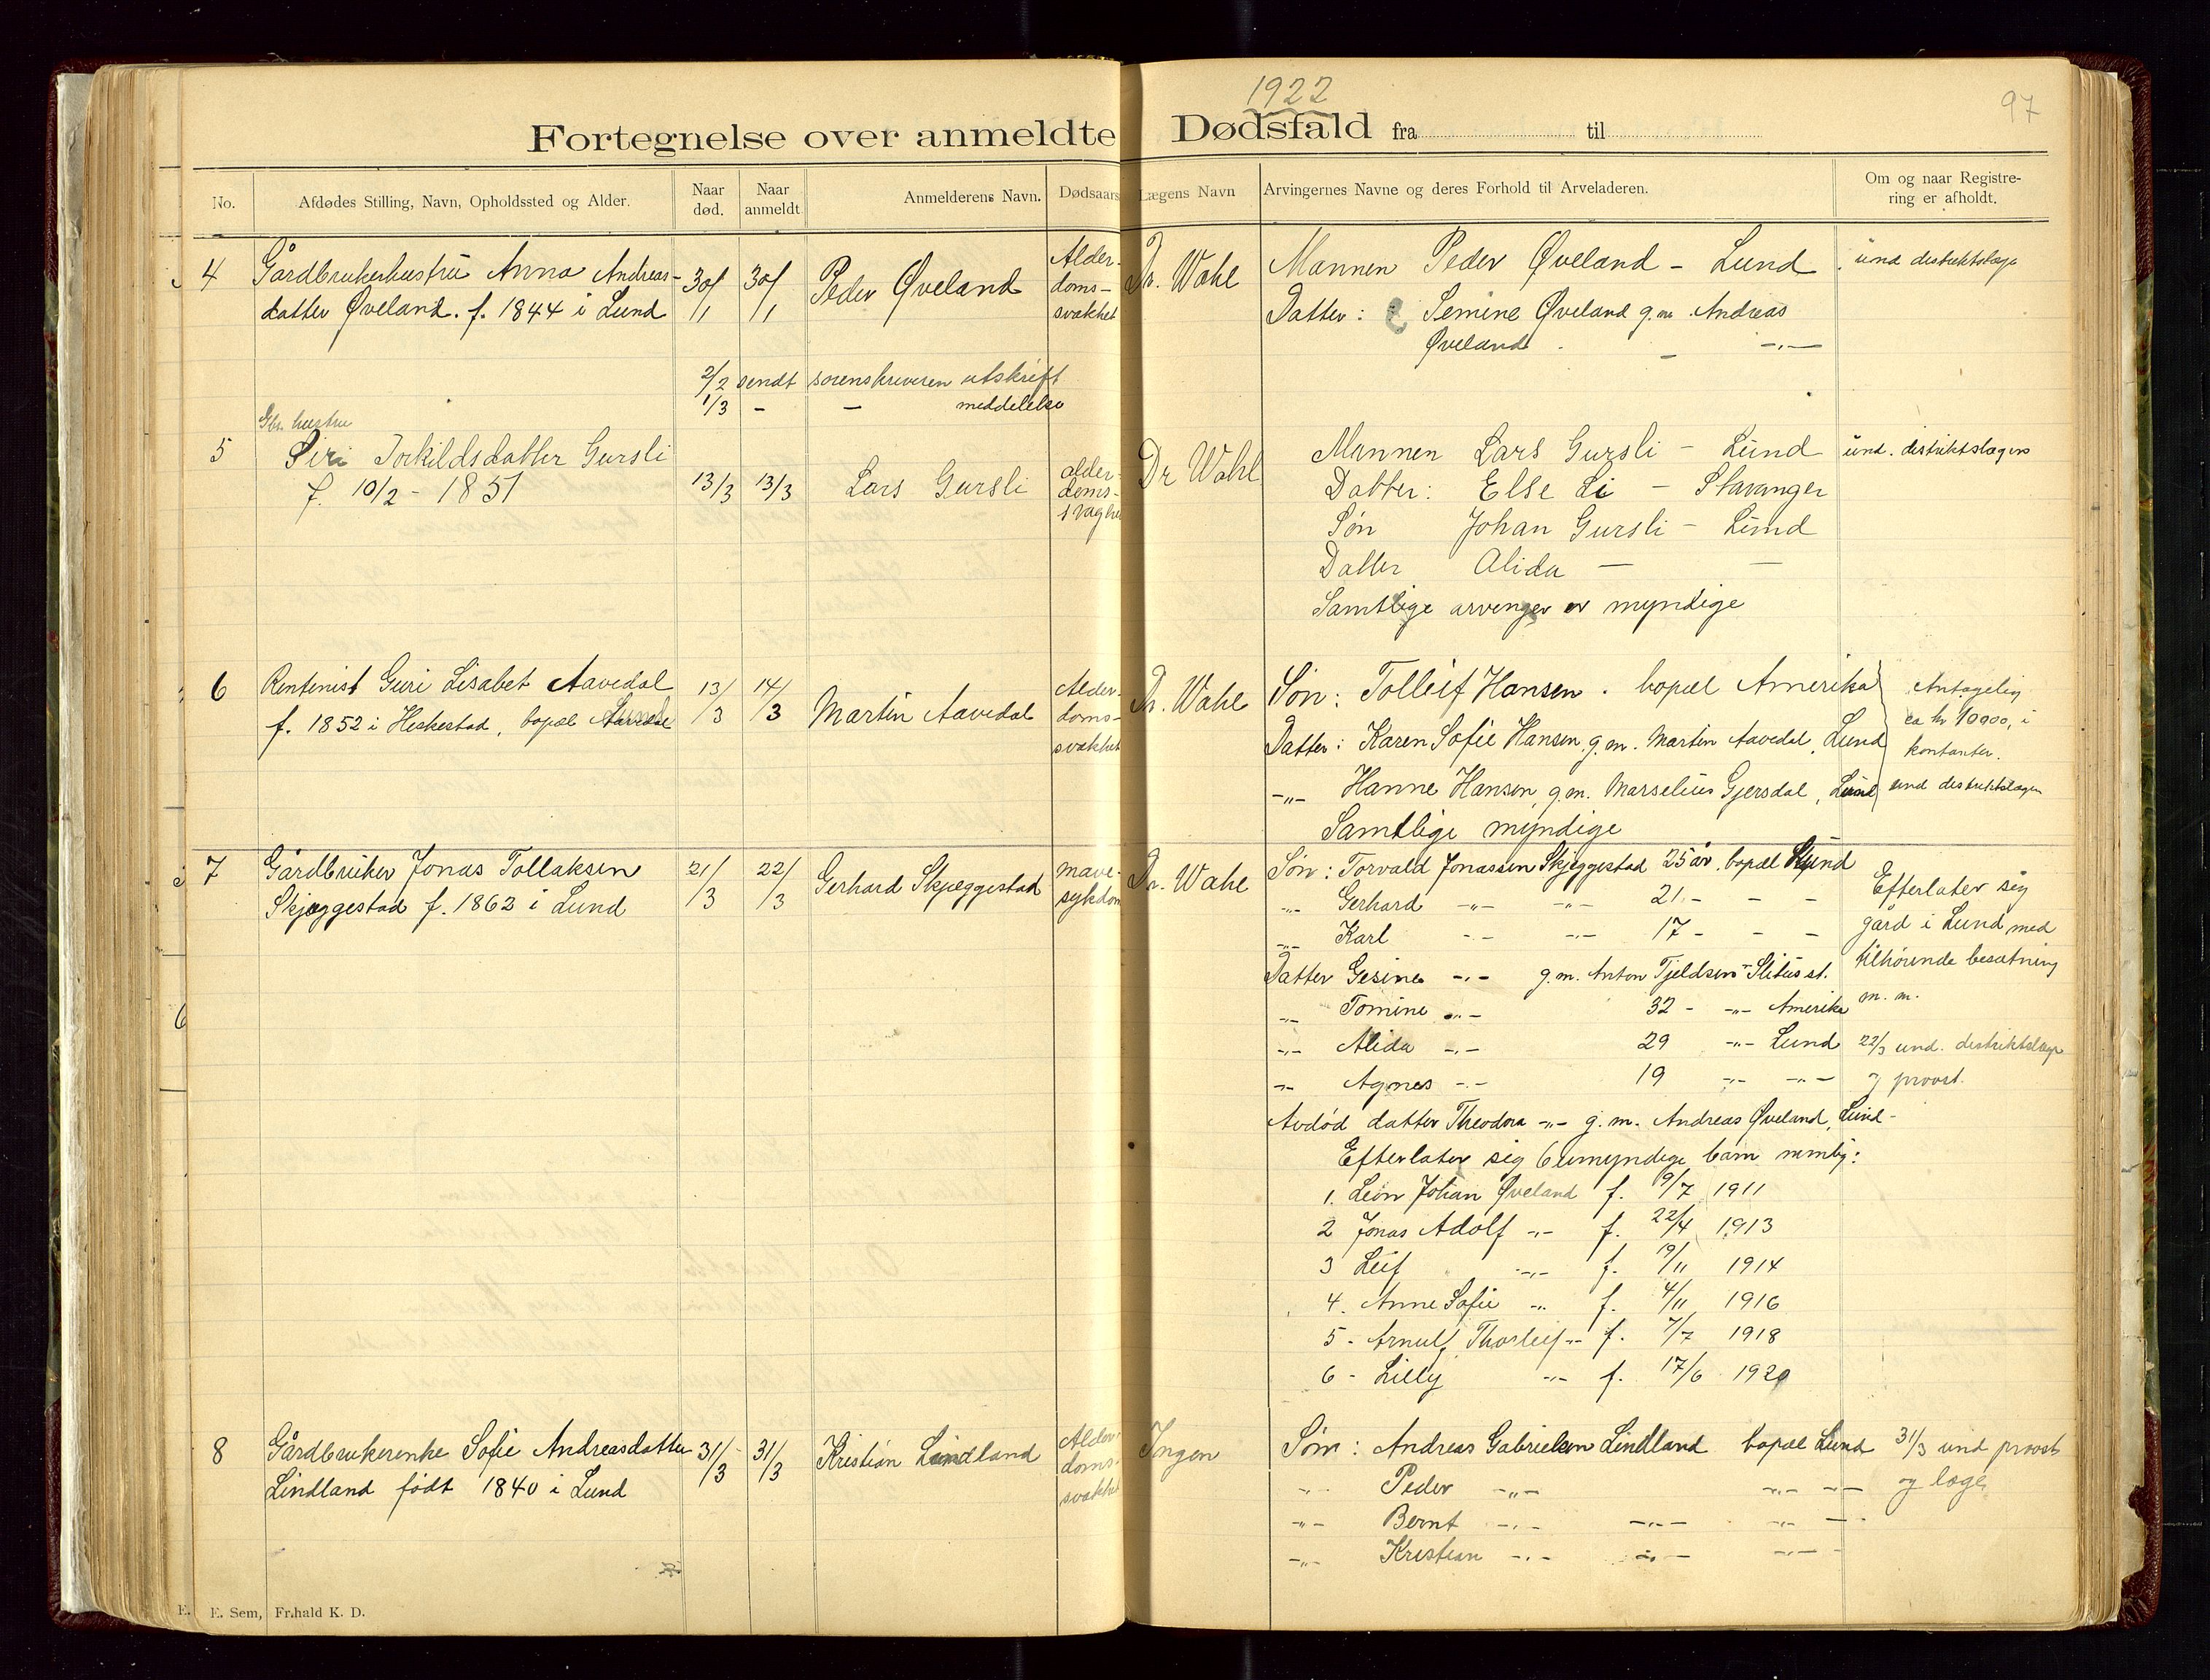 1922
97
Fortegnelse over anmeldte Dødsfald fra til
No.
Afdødes Stilling, Navn, Opholdssted og Alder.
Naar død.
Naar anmeldt
Anmelderens Navn.
Dødsaars
Lægens Navn
Arvingernes Navne og deres Forhold til Arveladeren.
Om og naar Registre-
ring er afholdt.
4
Gårdbrukerhustru Anna Andreas-
datter Øveland. f. 1844 i Lund
30/1
30/1
Peder Øveland
Alder-
doms-
svakhet
Dr. Wahl
Mannen Peder Øveland - Lund
Datter: Semine Øveland g.m. Andreas
Øveland - -"-
und distriktslæge
2/2 sendt sorenskriveren utskrift
1/3 - - meddelelse
5
Gbr. hustru
Siri Torkildsdatter Gursli
f. 10/2 - 1851
13/3
13/3
Lars Gursli
alder-
doms-
svaghe
Dr Wahl
Mannen Lars Gursli - Lund
Datter: Else Li - Stavanger
Søn Johan Gursli - Lund
Datter Alida - -
Samtlige arvenger er myndige
und. distriktslægen
6
Rentenist Guri Lisabet Aavedal
f. 1852 i Heskestad, bopæl Lund
13/3
14/3
Martin Aavedal
Alder-
doms-
svakhet
Dr. Wahl
Søn: Tolleif Hansen. bopæl Amerika
Datter: Karen Sofie Hansen, g.m. Martin Aavedal, Lund
-"- Hanne Hansen, g.m. Marselius Gjersdal, Lund
Samtlige myndige
Antagelig
ca kr 10000, i
kontanter.
und distriktslægen
7
Gårdbruker Jonas Tollaksen
Skjeggestad f. 1862 i Lund
21/3
22/3
Gerhard Skjeggestad
mave-
sykdom
Dr. Wahl
Søn: Torvald Jonassen Skjeggestad 25 år, bopæl Lund
-"- Gerhard -"- -"- 21 - - -
-"- Karl -"- -"- 17 - - -
Datter Gesine -"- g.m. Anton Tjeldsen
-"- Tomine -"- 32 - -"- Amerika
-"- Alida -"- 29 -"- Lund
-"- Agnes -"- 19 -"- -"-
Avdød datter Theodora -"- g.m. Andreas Øveland, Lund-
Efterlater sig 6 umyndige barn nemlig:
1. Leon Johan Øveland f. 9/7 1911
2 Jonas Adolf -"- f. 22/4 1913
3 Leif -"- f. 19/11 1914
4. Anne Sofie -"- f. 4/11 1916
5 - Arnulf Thorleif -"- f. 7/7 1918
6 - Lilly -"- f. 17/6 1920
Efterlater sig
gård i Lund med
tilhørende besætning
m. m.
22/3 und. distriktslæge
og provst.
8
Gårdbrukerenke Sofie Andreasdatter
Lindland født 1840 i Lund
31/3
31/3
Kristian Lindland
Alder-
doms-
svakhet
Ingen
Søn: Andreas Gabrielsen Lindland bopæl Lund
-"- Peder -"- -"- -"-
-"- Bernt -"- -"- -"- -
-"- Kristian -"- -"- -"-
31/3 und provst
og læge
E. E. Sem, Fr.hald K. D.